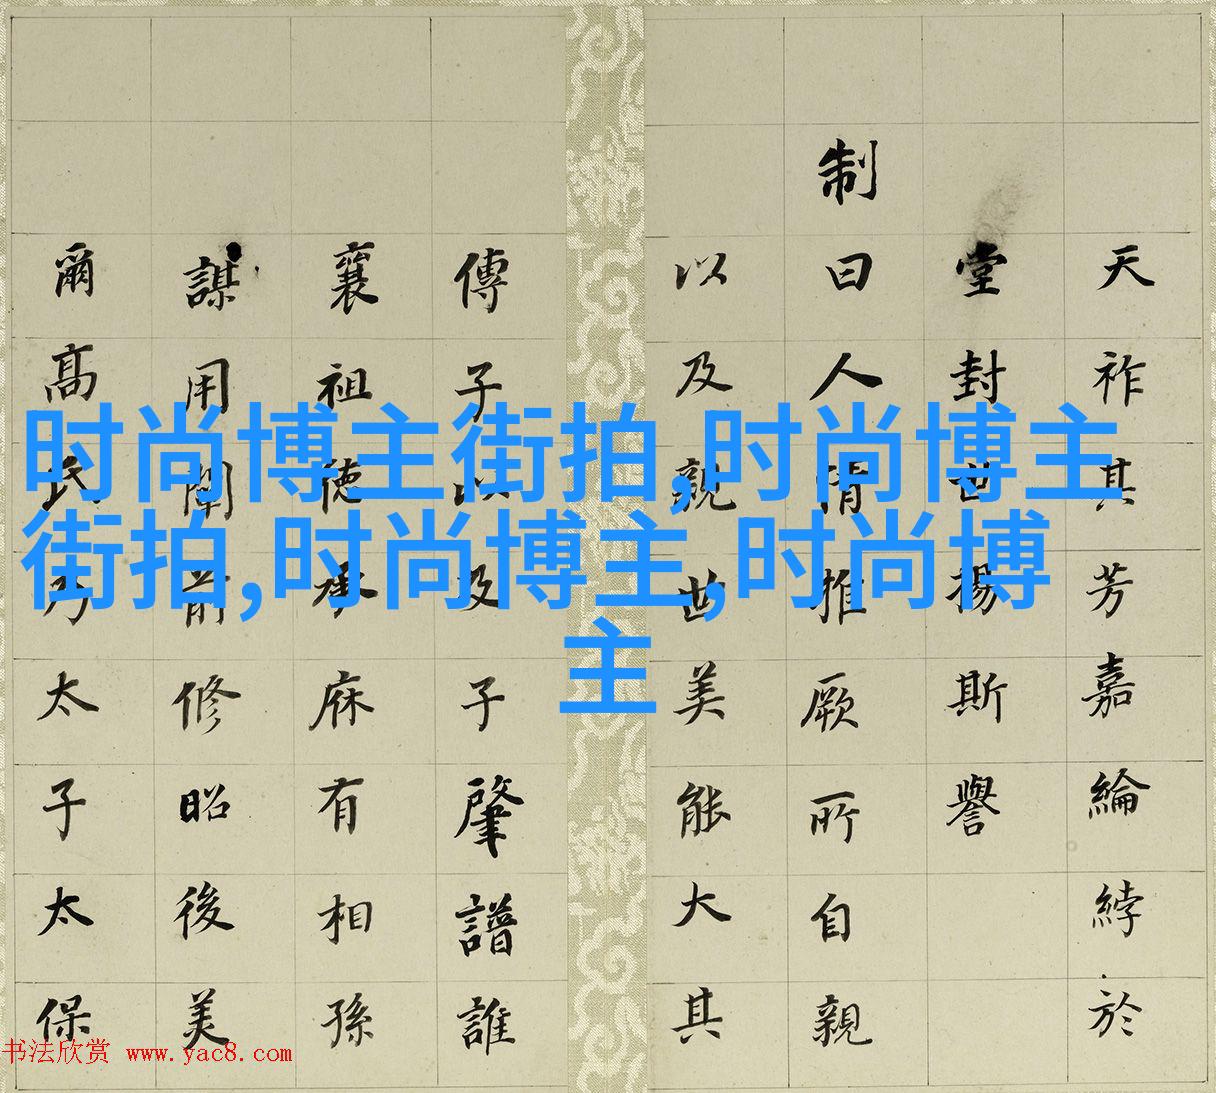 天祚其芳嘉綸綍於
堂封世揚斯譽
制曰人情推厥所自親
以及親世美能大其
傳子以及子肇譜誰
襄祖德承庥有相孫
謀用闡前修昭後美
爾高氏乃太子太保
时尚博主街拍,时尚博主
街拍,时尚博主,时尚博
主
书法欣赏 www.yac8.com